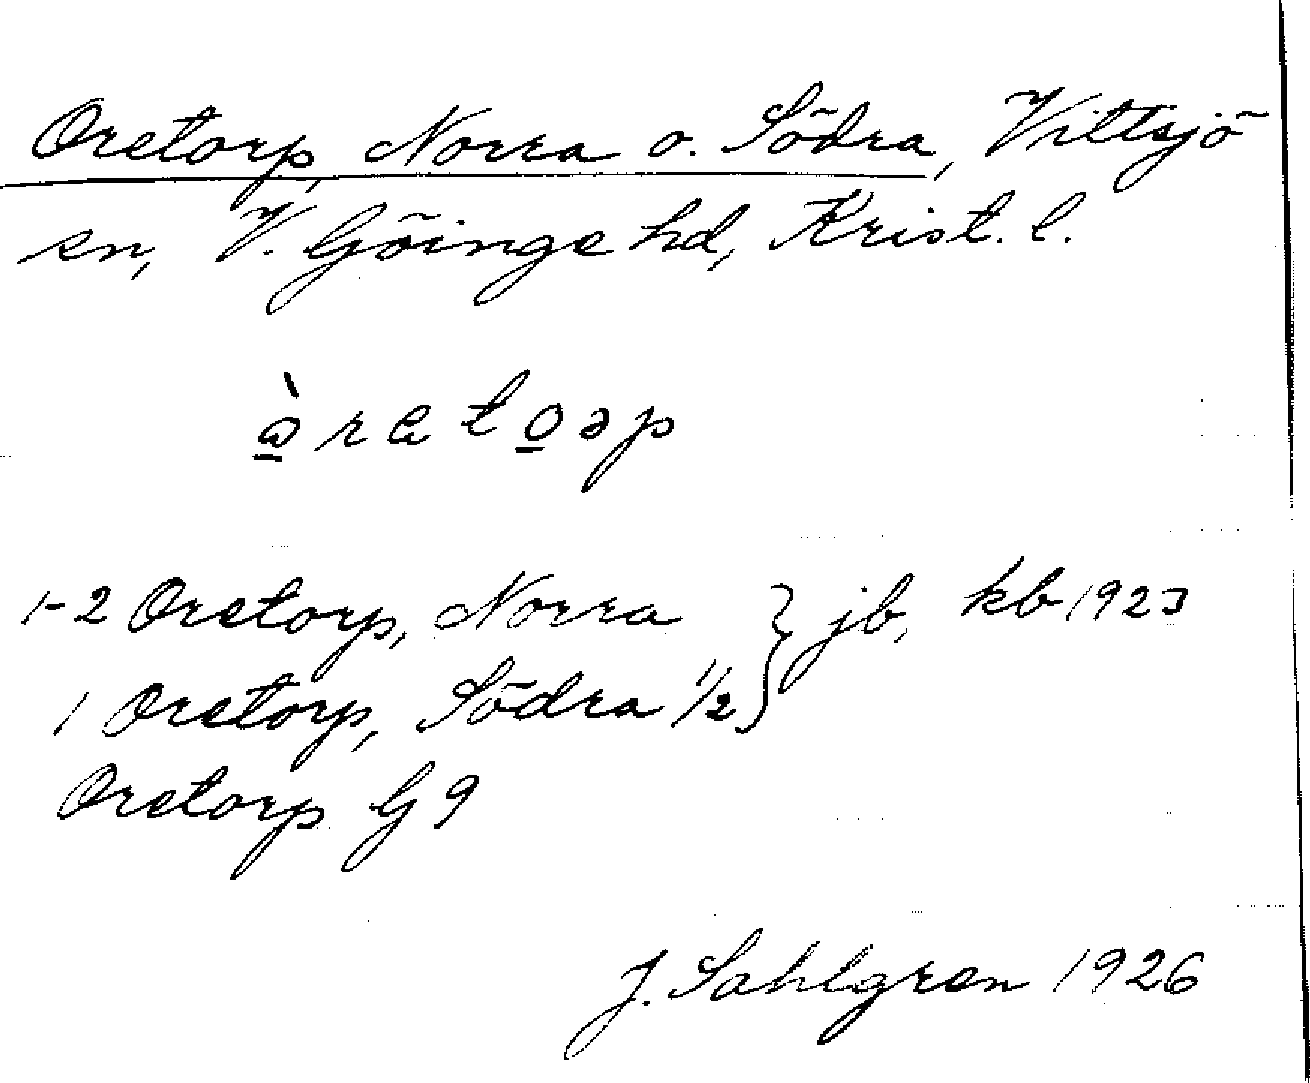 Oretorp, Norra o. Södra, Vittsjö
sn, V. Göinge hd, Krist. l.
1-2 Oretorp, Norra } jb, kb 1923
1 Oretorp, Södra 1/2
Oretorp G 9
J. Sahlgren 1926